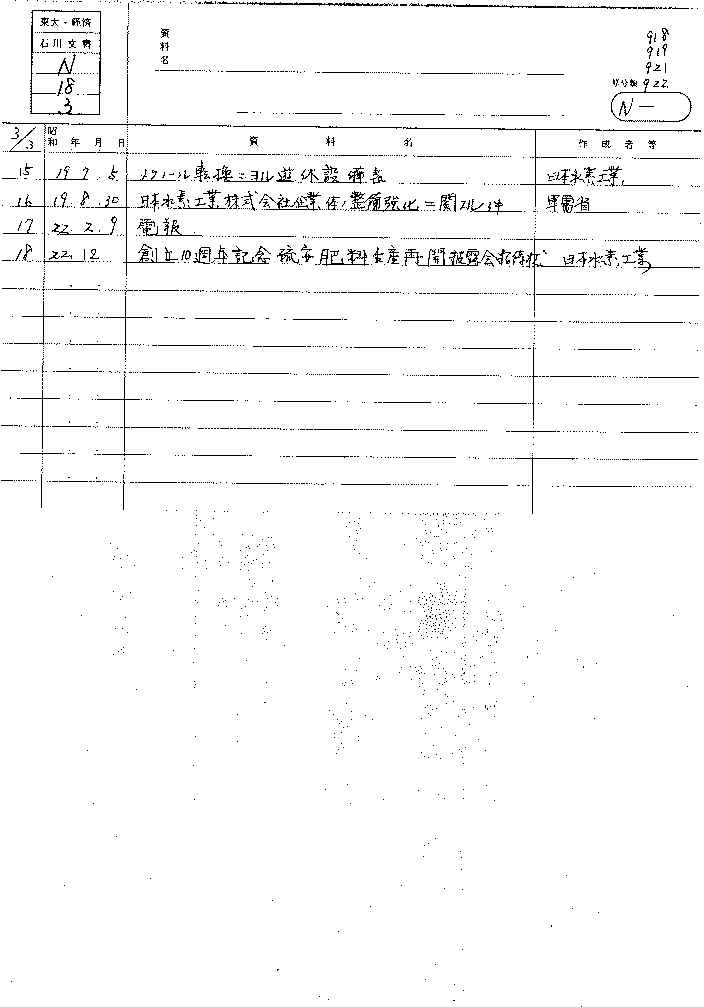 東大・経済
石川文書
N
18
3
資料名
918
919
921
原分類 922
N一
3/3 昭和 年 月 日 資 料 名 作 成 者 等
15 19 7 5 メタノール転換ニヨル遊休設備表 日本水素工業
16 19 8 30 日本水素工業株式会社企業ノ整備強化ニ関スル件 軍需省
17 22 2 9 電報
18 22 12 創立10週年記念硫安肥料生産再開披露会招待状 日本水素工業